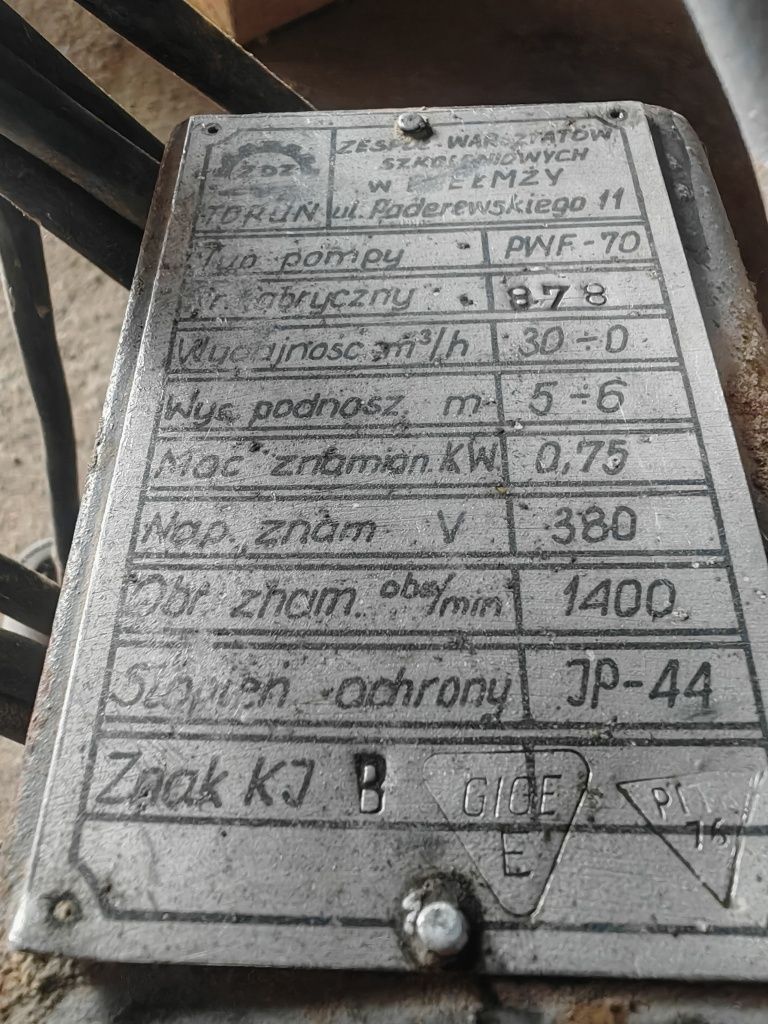 ZDZ
TORUŃ
ZESPÓŁ WARSZTATÓW
SZKOLENIOWYCH
W CHEŁMŻY
ul. Paderewskiego 11
Typ pompy PWF-70
Nr. fabryczny 878
Wydajność m³/h 30÷0
Wys. podnosz. m 5÷6
Moc znamion. KW 0,75
Nap. znam V 380
Obr. znam. obr/min 1400
Stopień ochrony JP-44
Znak KJ B GIGE PIT
E 76